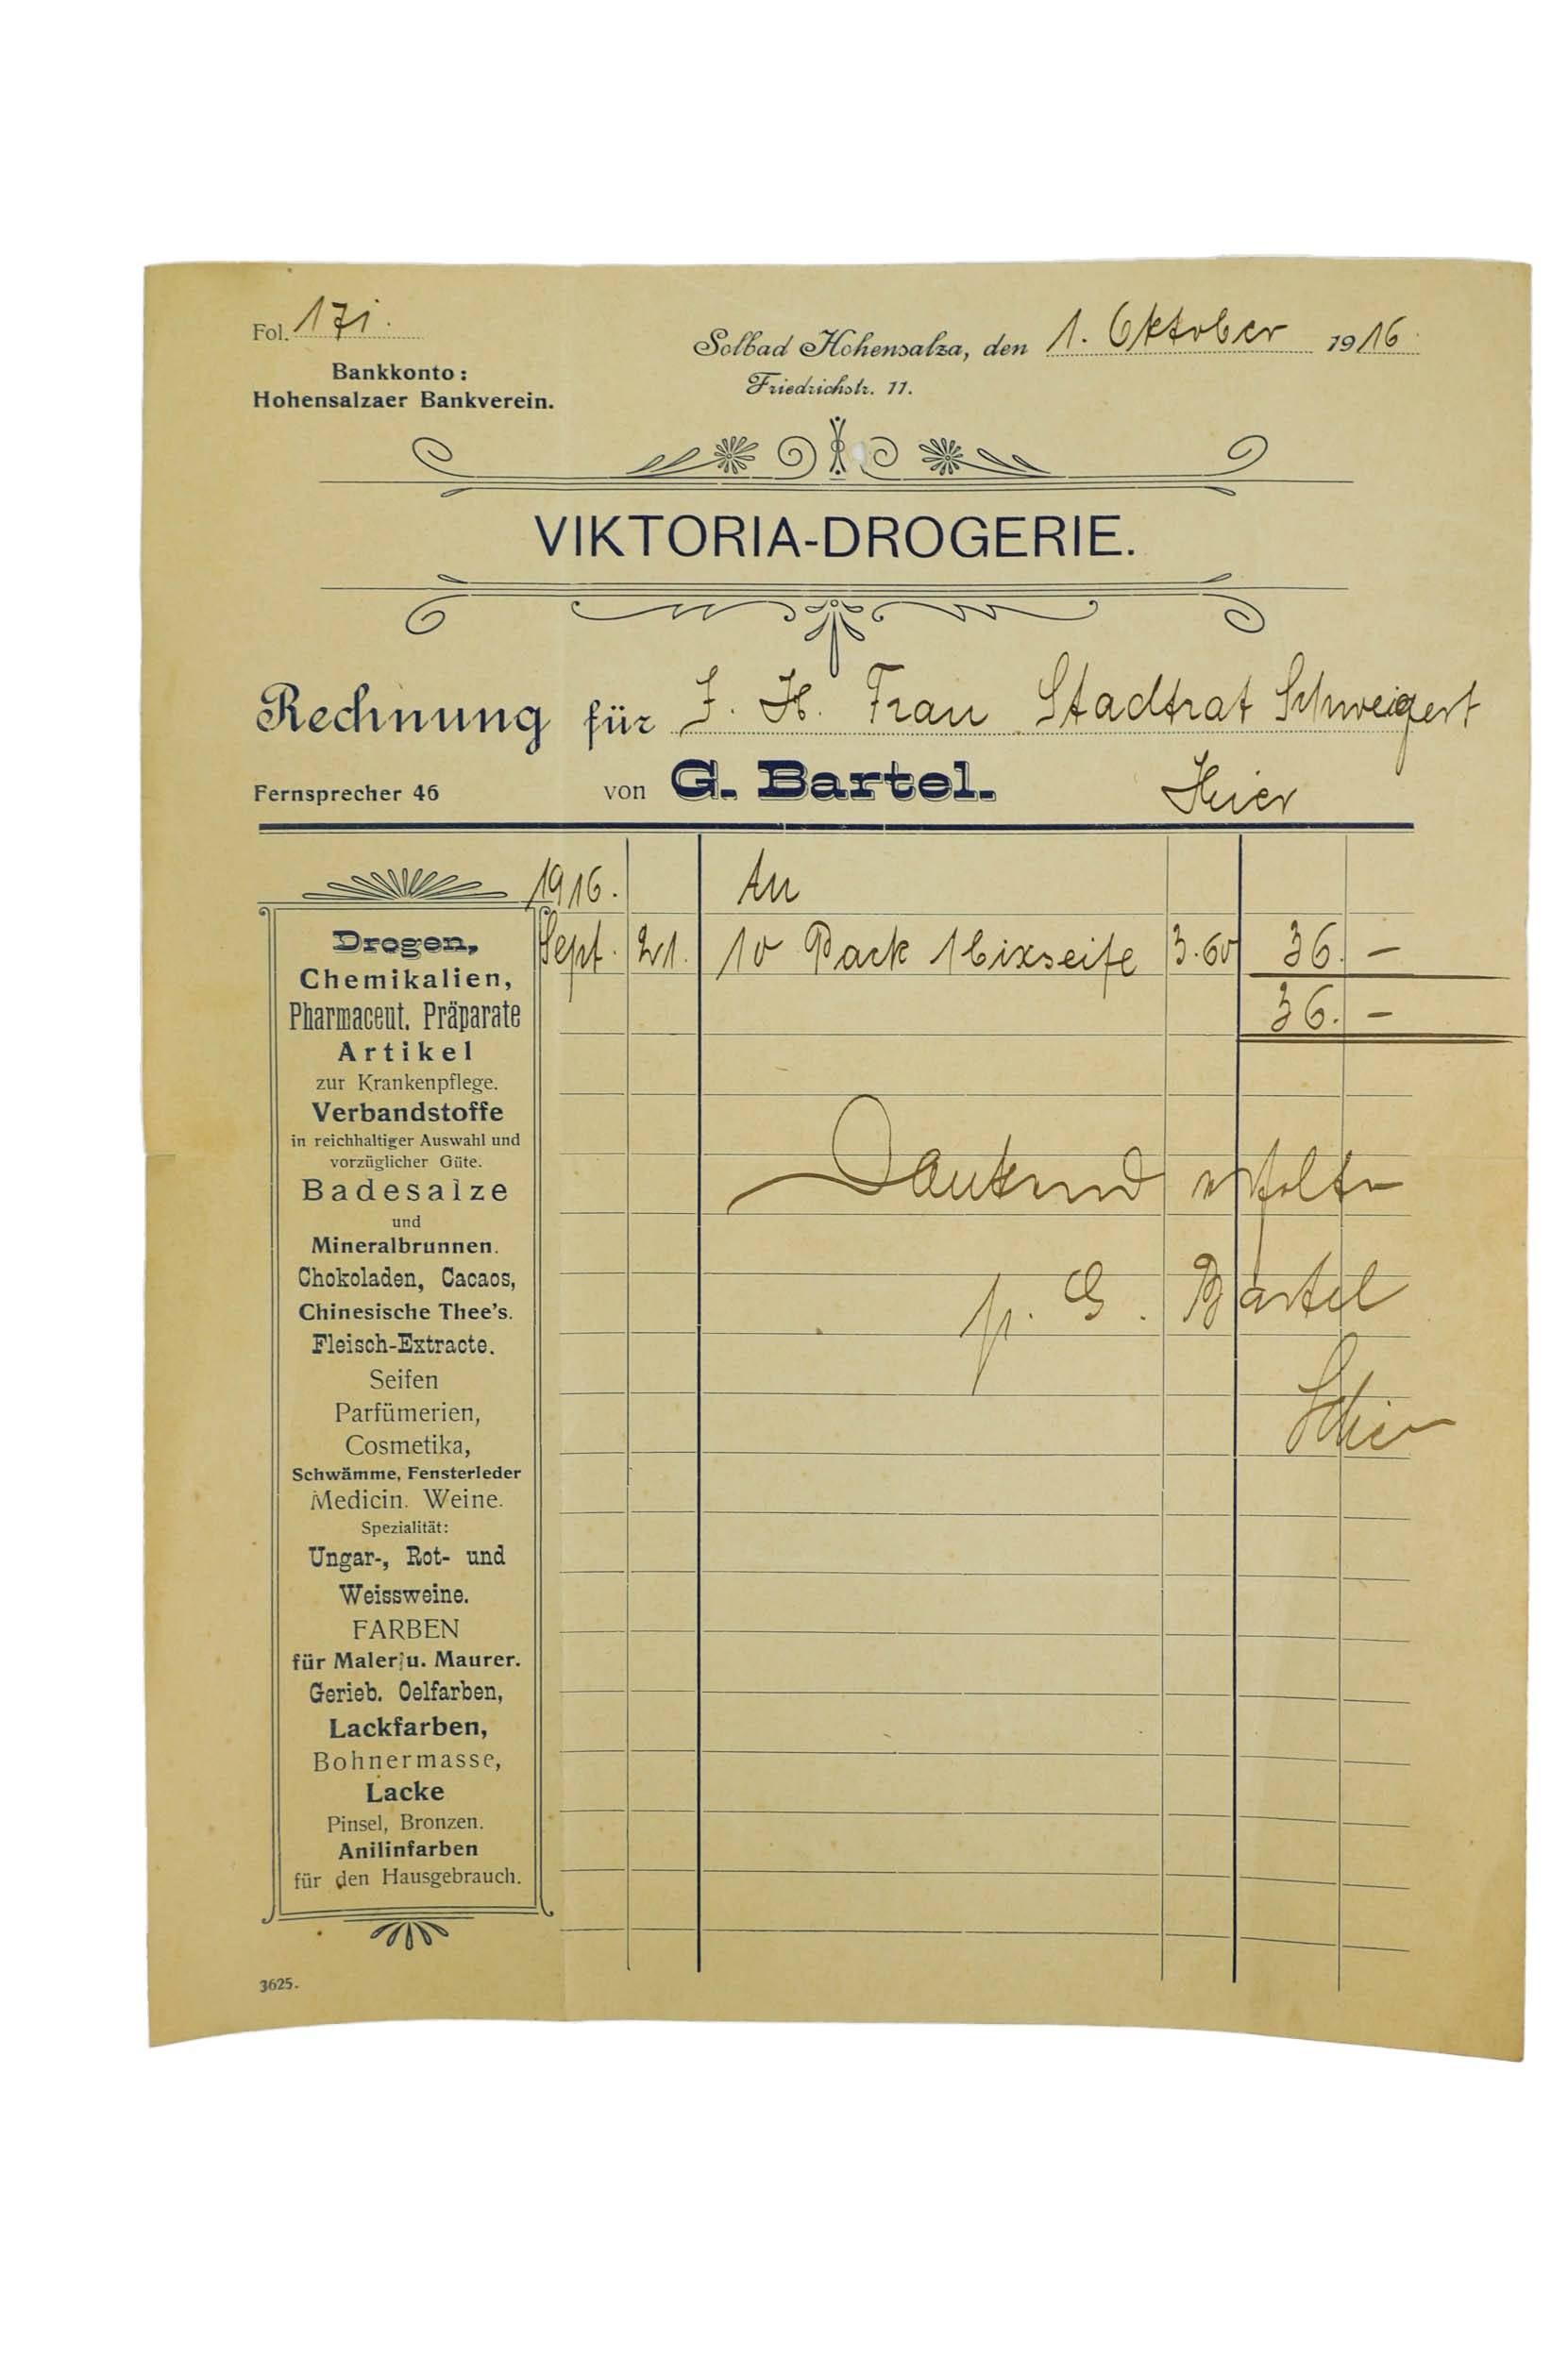 Fol. 171.
Bankkonto:
Hohensalzaer Bankverein.
Solbad Hohensalza, den 1. Oktober 1916.
Friedrichstr. 11.
VIKTORIA-DROGERIE.
Rechnung für F. H. Frau Stadtrat Schweigert
Fernsprecher 46 von G. Bartel. Hier
1916. An
Sept. 21. 10 Pack 3.60 36. –
36. –
Dankend erhalten
p. G. Bartel
Drogen,
Chemikalien,
Pharmaceut. Präparate
Artikel
zur Krankenpflege.
Verbandstoffe
in reichhaltiger Auswahl und
vorzüglicher Güte.
Badesalze
und
Mineralbrunnen.
Chokoladen, Cacaos,
Chinesische Thee's.
Fleisch-Extracte.
Seifen
Parfümerien,
Cosmetika,
Schwämme, Fensterleder
Medicin. Weine.
Spezialität:
Ungar-, Rot- und
Weissweine.
FARBEN
für Maler u. Maurer.
Gerieb. Oelfarben,
Lackfarben,
Bohnermasse,
Lacke
Pinsel, Bronzen.
Anilinfarben
für den Hausgebrauch.
3625.